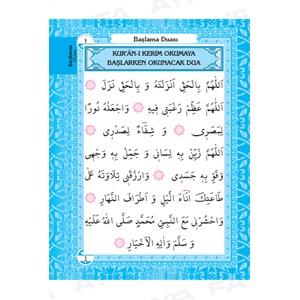 Başlama Duası
1
Başlama
KUR'ÂN-I KERİM OKUMAYA
BAŞLARKEN OKUNACAK DUA
اَللّٰهُمَّ بِالْحَقِّ اَنْزَلْتَهُ وَ بِالْحَقِّ نَزَلَ
اَللّٰهُمَّ عَظِّمْ رَغْبَتِى فِيهِ وَاجْعَلْهُ نُورًا
لِبَصَرِى وَ شِفَاءً لِصَدْرِى
اَللّٰهُمَّ زَيِّنْ بِهِ لِسَانِى وَ جَمِّلْ بِهِ وَجْهِى
وَ قَوِّ بِهِ جَسَدِى وَارْزُقْنِى تِلَاوَتَهُ عَلٰى
طَاعَتِكَ اٰنَاءَ الَّيْلِ وَ اَطْرَافَ النَّهَارِ
وَاحْشُرْنِى مَعَ النَّبِىِّ مُحَمَّدٍ صَلَّى اللّٰهُ عَلَيْهِ
وَ سَلَّمَ وَاٰلِهِ الْاَخْيَارِ